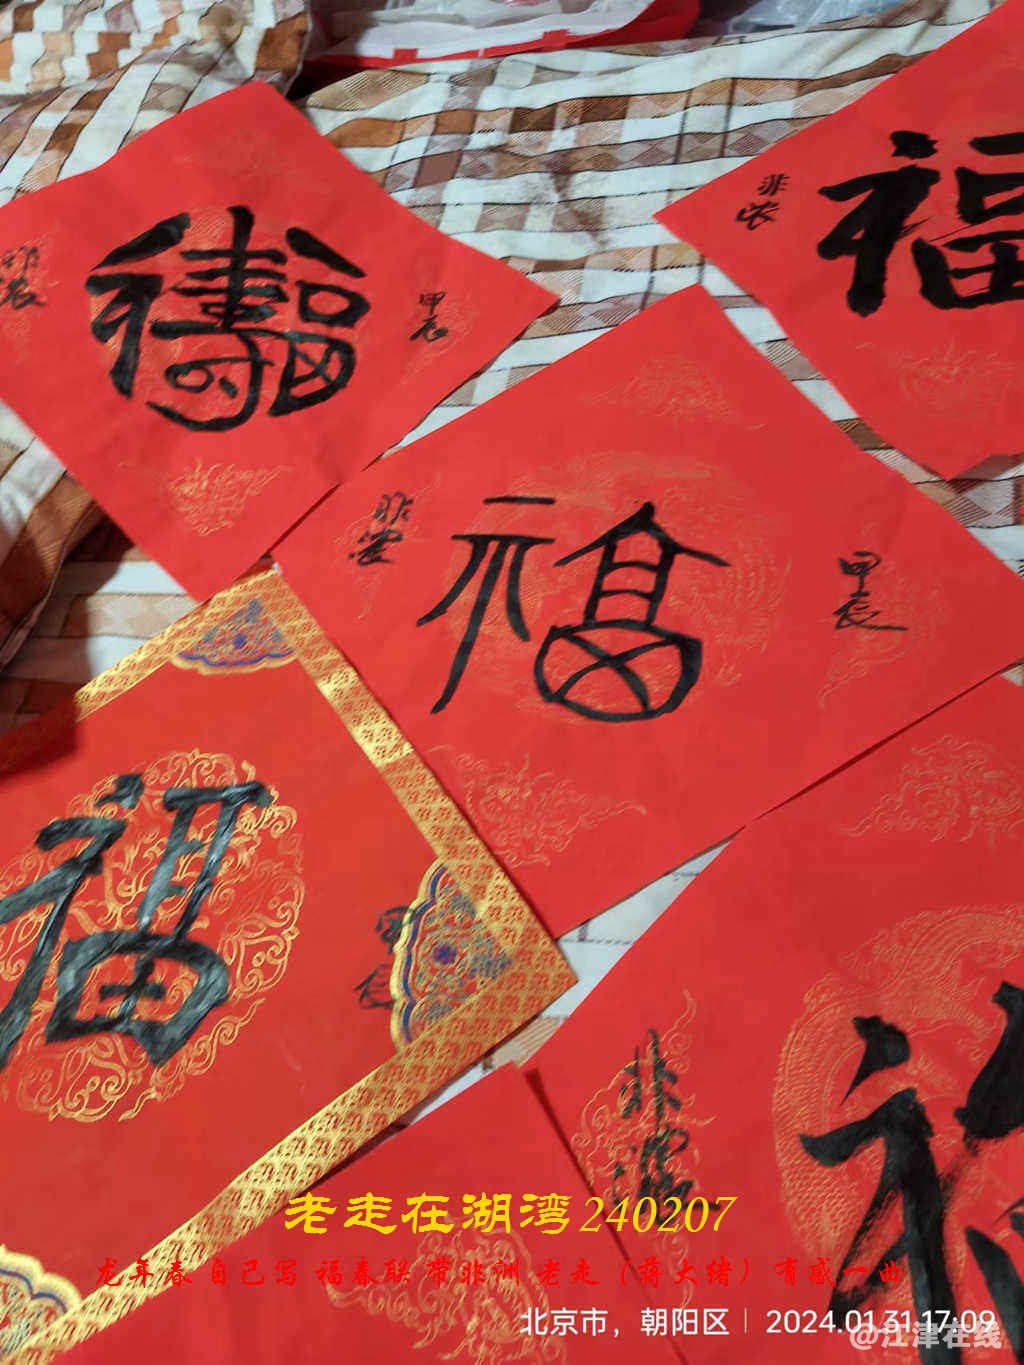 福
非
浓
福
甲
辰
非
浓
福
甲
辰
福
甲
辰
非
浓
福
老走在湖湾240207
龙年春 自己写 福春联 带非洲 老走（蒋大绪）有感一曲
北京市，朝阳区 | 2024.01.31 17:09
@江津在线